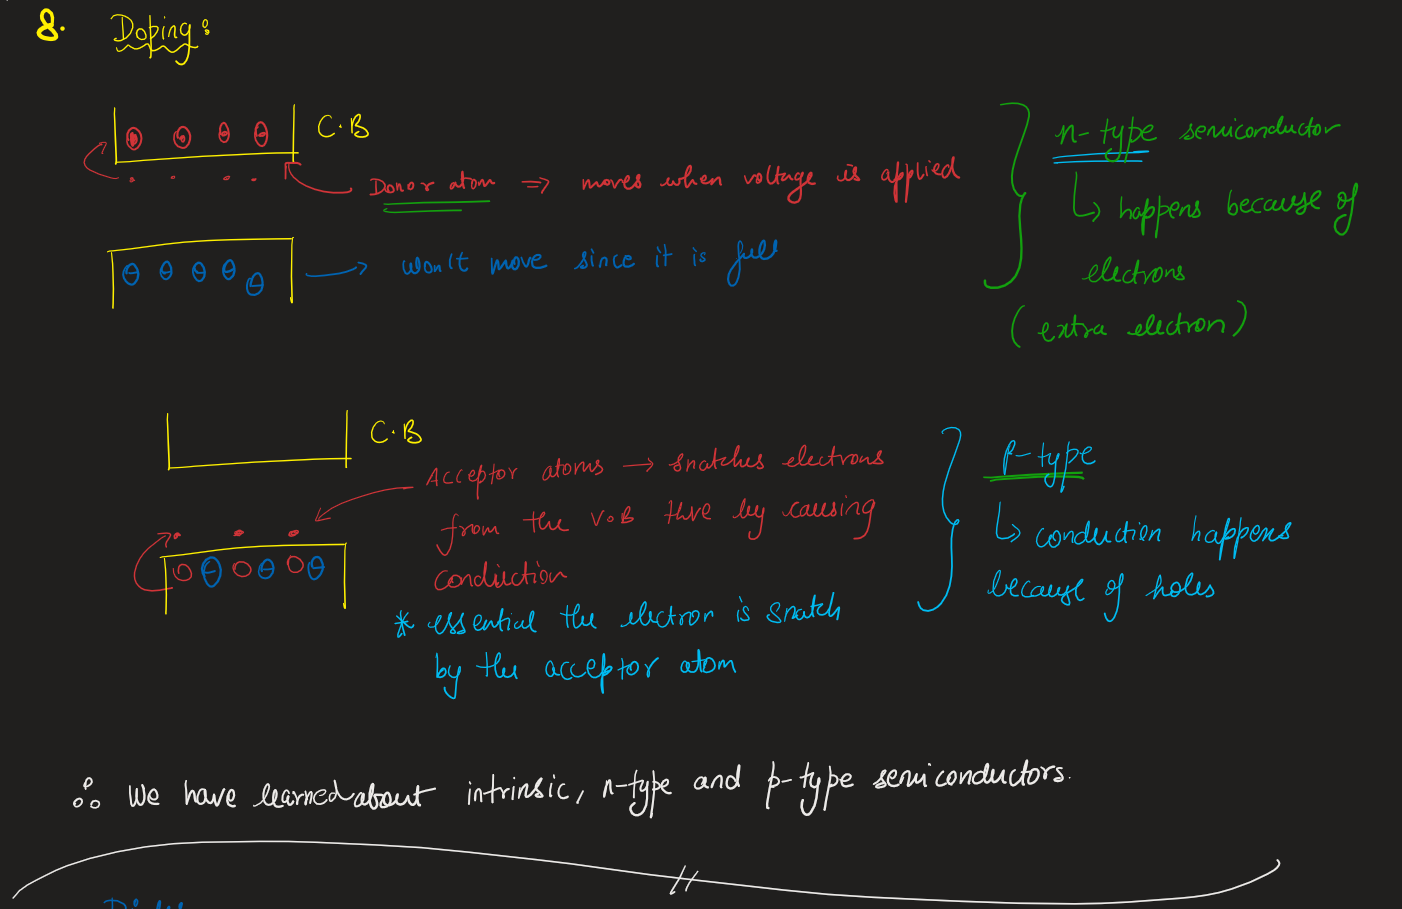 8. Doping:
C.B
Donor atom ⇒ moves when voltage is applied
won't move since it is full
n-type semiconductor
↳ happens because of
electrons
(extra electron)
C.B
Acceptor atoms → snatches electrons
from the V.B thre by causing
conduction
* essential the electron is snatch
by the acceptor atom
p-type
↳ conduction happens
because of holes
∴ We have learned about intrinsic, n-type and p-type semiconductors.